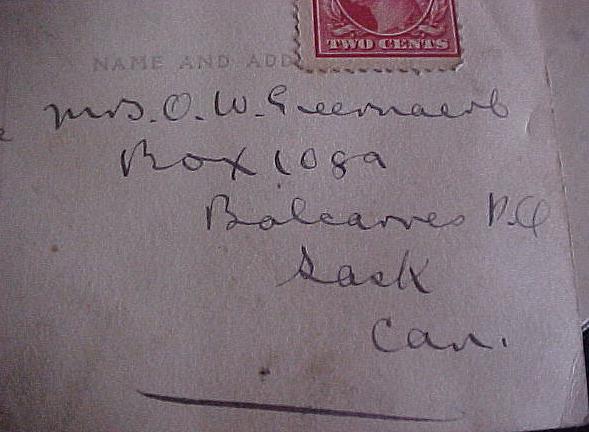 TWO CENTS
NAME AND ADD
Mrs. O. W. Greenaerb
Box 108a
Balcarres P.O
Sask
Can.